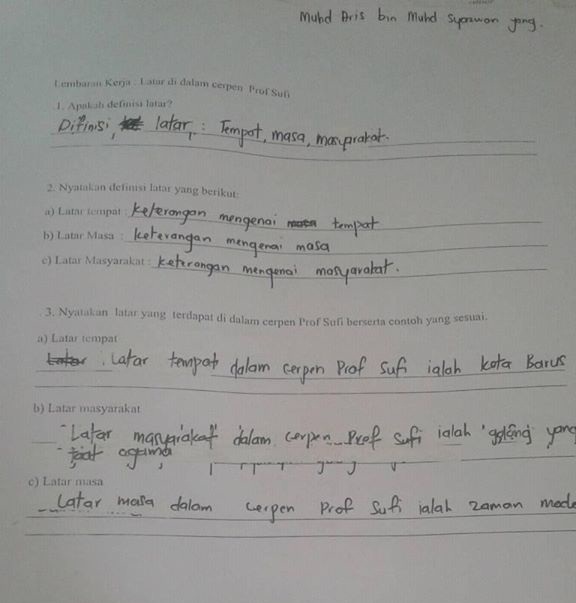 Muhd Aris bin Muhd Syazwan yang.
Lembaran Kerja : Latar di dalam cerpen Prof Sufi
1. Apakah definisi latar?
Difinisi, latar, : Tempat, masa, masyarakat.
2. Nyatakan definisi latar yang berikut:
a) Latar tempat : keterangan mengenai tempat
b) Latar Masa : keterangan mengenai masa
c) Latar Masyarakat : keterangan mengenai masyarakat.
3. Nyatakan latar yang terdapat di dalam cerpen Prof Sufi berserta contoh yang sesuai.
a) Latar tempat
: Latar tempat dalam cerpen Prof Sufi ialah kota Barus
b) Latar masyarakat
- Latar masyarakat dalam cerpen Prof Sufi ialah yang
- taat agama
c) Latar masa
Latar masa dalam cerpen Prof Sufi ialah zaman mode